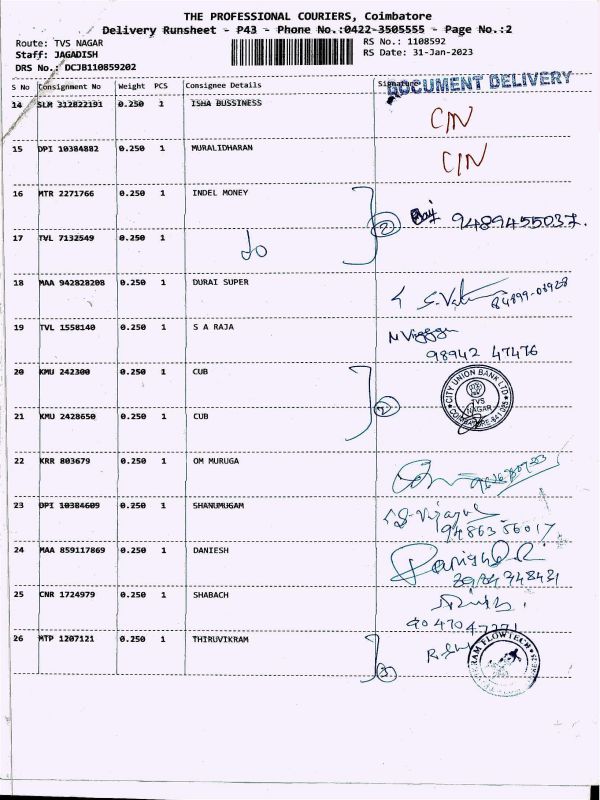 THE PROFESSIONAL COURIERS, Coimbatore
Delivery Runsheet - P43 - Phone No.:0422-3505555 - Page No.:2
Route: TVS NAGAR RS No.: 1108592
Staff: JAGADISH RS Date: 31-Jan-2023
DRS No.: DCJB110859202
DOCUMENT DELIVERY
S No Consignment No Weight PCS Consignee Details Signature
14 SLM 312822191 0.250 1 ISHA BUSSINESS C/N
15 DPI 10384882 0.250 1 MURALIDHARAN C/N
16 MTR 2271766 0.250 1 INDEL MONEY
2 9489455037.
17 TVL 7132549 0.250 1 do
18 MAA 942828208 0.250 1 DURAI SUPER
84899-08928
19 TVL 1558140 0.250 1 S A RAJA
98942 47476
20 KMU 242300 0.250 1 CUB
CITY UNION BANK LTD
TVS NAGAR
COIMBATORE-641 025
21 KMU 2428650 0.250 1 CUB
22 KRR 803679 0.250 1 OM MURUGA
23 DPI 10384609 0.250 1 SHANUMUGAM
9486356017
24 MAA 859117869 0.250 1 DANIESH
25 CNR 1724979 0.250 1 SHABACH
26 MTP 1207121 0.250 1 THIRUVIKRAM 3
FLOWTECH